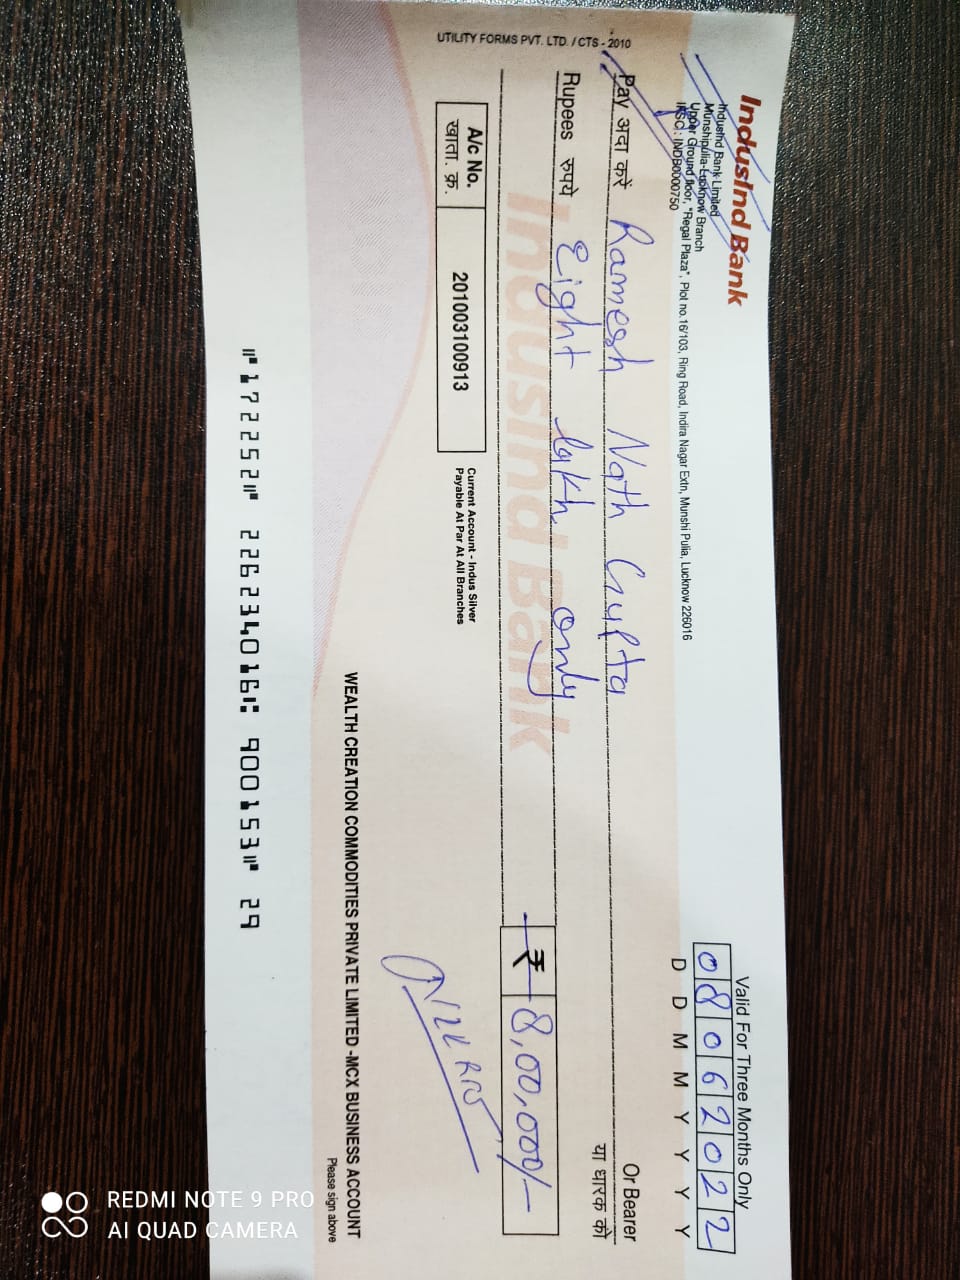 IndusInd Bank
IndusInd Bank Limited
Munshipulia-Lucknow Branch
Upper Ground floor, "Regal Plaza", Plot no.16/103, Ring Road, Indira Nagar Extn, Munshi Pulia, Lucknow 226016
IFSC : INDB0000750
Valid For Three Months Only
0 8 0 6 2 0 2 2
D D M M Y Y Y Y
Pay अदा करें Ramesh Nath Gupta
Or Bearer
या धारक को
Rupees रुपये Eight lakh only
IndusInd Bank
₹ 8,00,000/-
A/c No.
खाता. क्र.
201003100913
Current Account - Indus Silver
Payable At Par At All Branches
WEALTH CREATION COMMODITIES PRIVATE LIMITED -MCX BUSINESS ACCOUNT
Please sign above
UTILITY FORMS PVT. LTD. / CTS - 2010
⑈172252⑈ 226234016⑆ 900153⑈ 29
REDMI NOTE 9 PRO
AI QUAD CAMERA